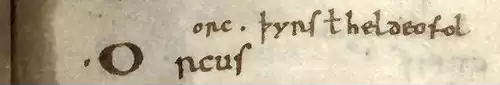 orc . þyrs ł heldeofol
· Orcus